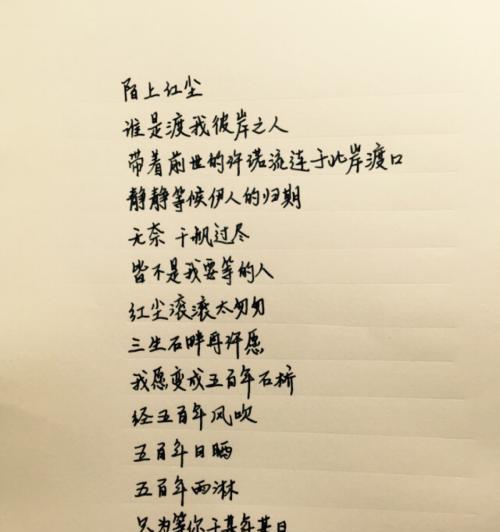 陌上红尘
谁是渡我彼岸之人
带着前世的许诺流连于此岸渡口
静静等候伊人的归期
无奈 千帆过尽
皆不是我要等的人
红尘滚滚太匆匆
三生石畔再许愿
我愿变成五百年石桥
经五百年风吹
五百年日晒
五百年雨淋
只为等你于某年某日